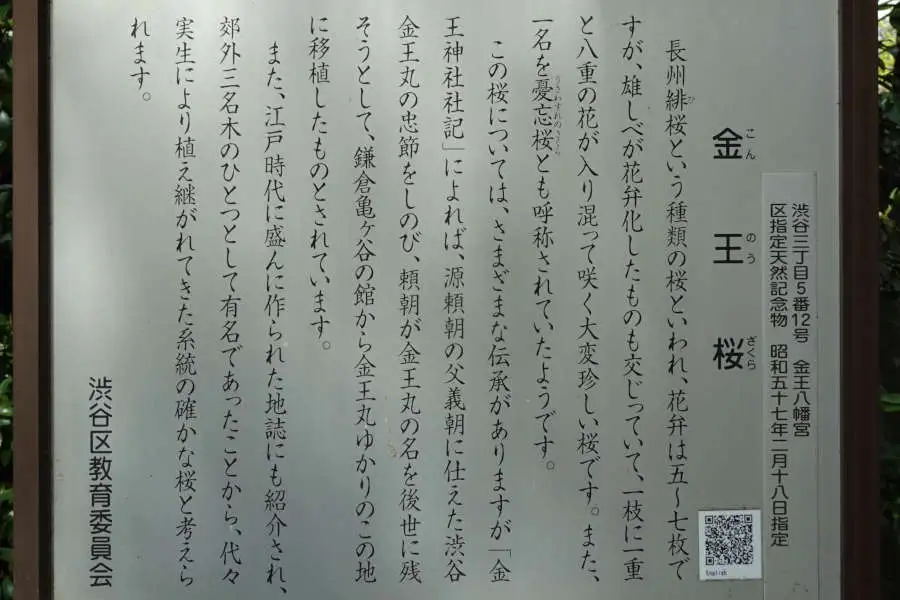 渋谷三丁目5番12号　金王八幡宮
区指定天然記念物　昭和五十七年二月十八日指定
金王桜
こんのうざくら
長州緋桜という種類の桜といわれ、花弁は五～七枚で
ひ
すが、雄しべが花弁化したものも交じっていて、一枝に一重
と八重の花が入り混って咲く大変珍しい桜です。また、
一名を憂忘桜とも呼称されていたようです。
うさわすれのさくら
この桜については、さまざまな伝承がありますが「金
王神社社記」によれば、源頼朝の父義朝に仕えた渋谷
金王丸の忠節をしのび、頼朝が金王丸の名を後世に残
そうとして、鎌倉亀ヶ谷の館から金王丸ゆかりのこの地
に移植したものとされています。
また、江戸時代に盛んに作られた地誌にも紹介され、
郊外三名木のひとつとして有名であったことから、代々
実生により植え継がれてきた系統の確かな桜と考えら
れます。
渋谷区教育委員会
English